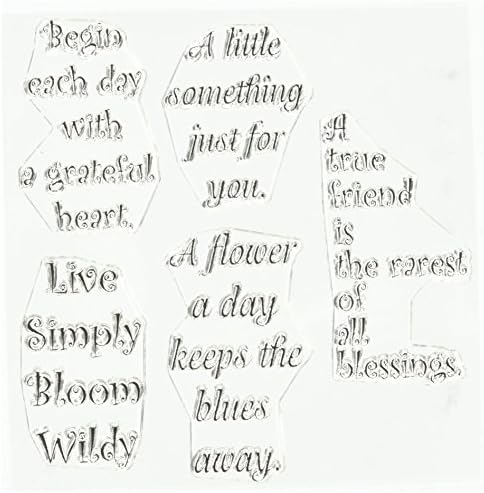 Begin
each day
with
a grateful
heart.
A little
something
just for
you.
A
true
friend
is
the rarest
of
all
blessings.
Live
Simply
Bloom
Wildy
A flower
a day
keeps the
blues
away.